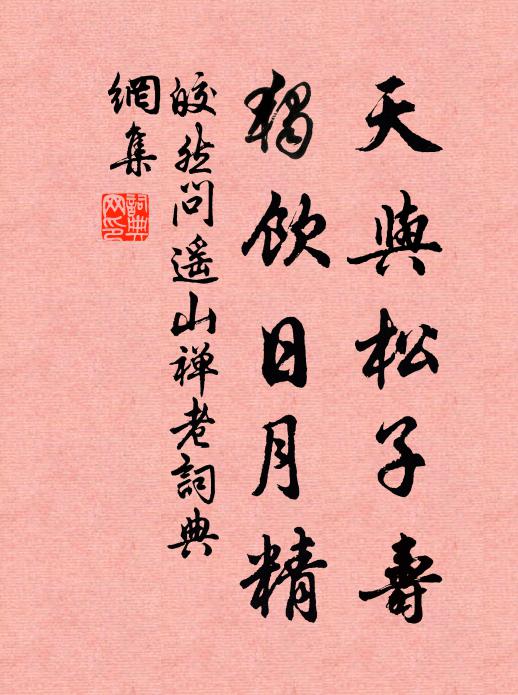 天與松子壽
獨飲日月精
皎然問遥山禅老詞典
網集
詞典
网印